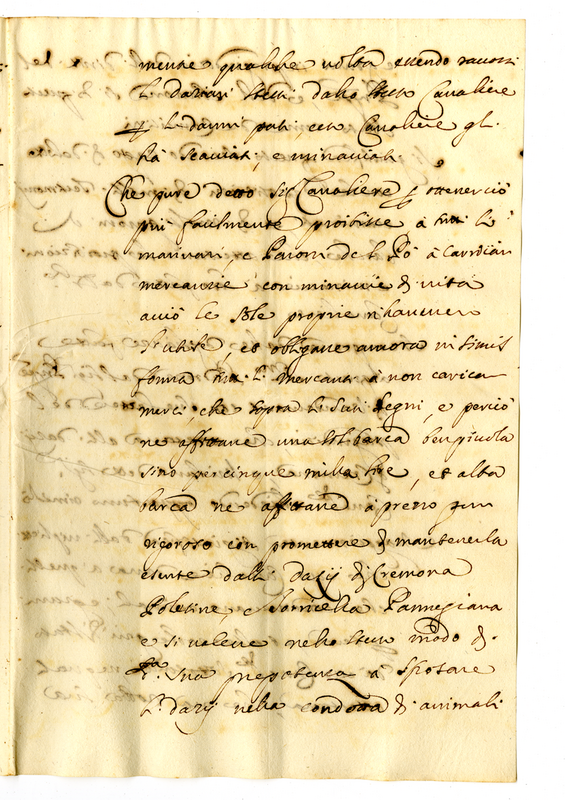 mente qualche volta essendo racorsi
li daziari stessi dallo stesso Cavaliere
li danni patiti esso Cavaliere gl'
hà scaciati, e minaciati
Che pure detto Sig.r Cavaliere p ottener ciò
più facilmente proibisce à tutti li
marinari, e Paroni de l Pò à
mercanzie con minacie di vita
acciò le sole proprie
, et obligare ancora in simil
forma tutti li mercanti à non caricar
merci, che sopra li suoi legni, e perciò
ne affittare una sol barca ben picola
sino per cinque mille lire, et altra
barca ne affittare à prezzo più
rigoroso con promettere di mantenerla
esente dalli dazij di Cremona
Polesine, e Torricella Parmegiana
e si valeva nello stesso modo di
sua prepotenza à
li dazij nella condotta di animali